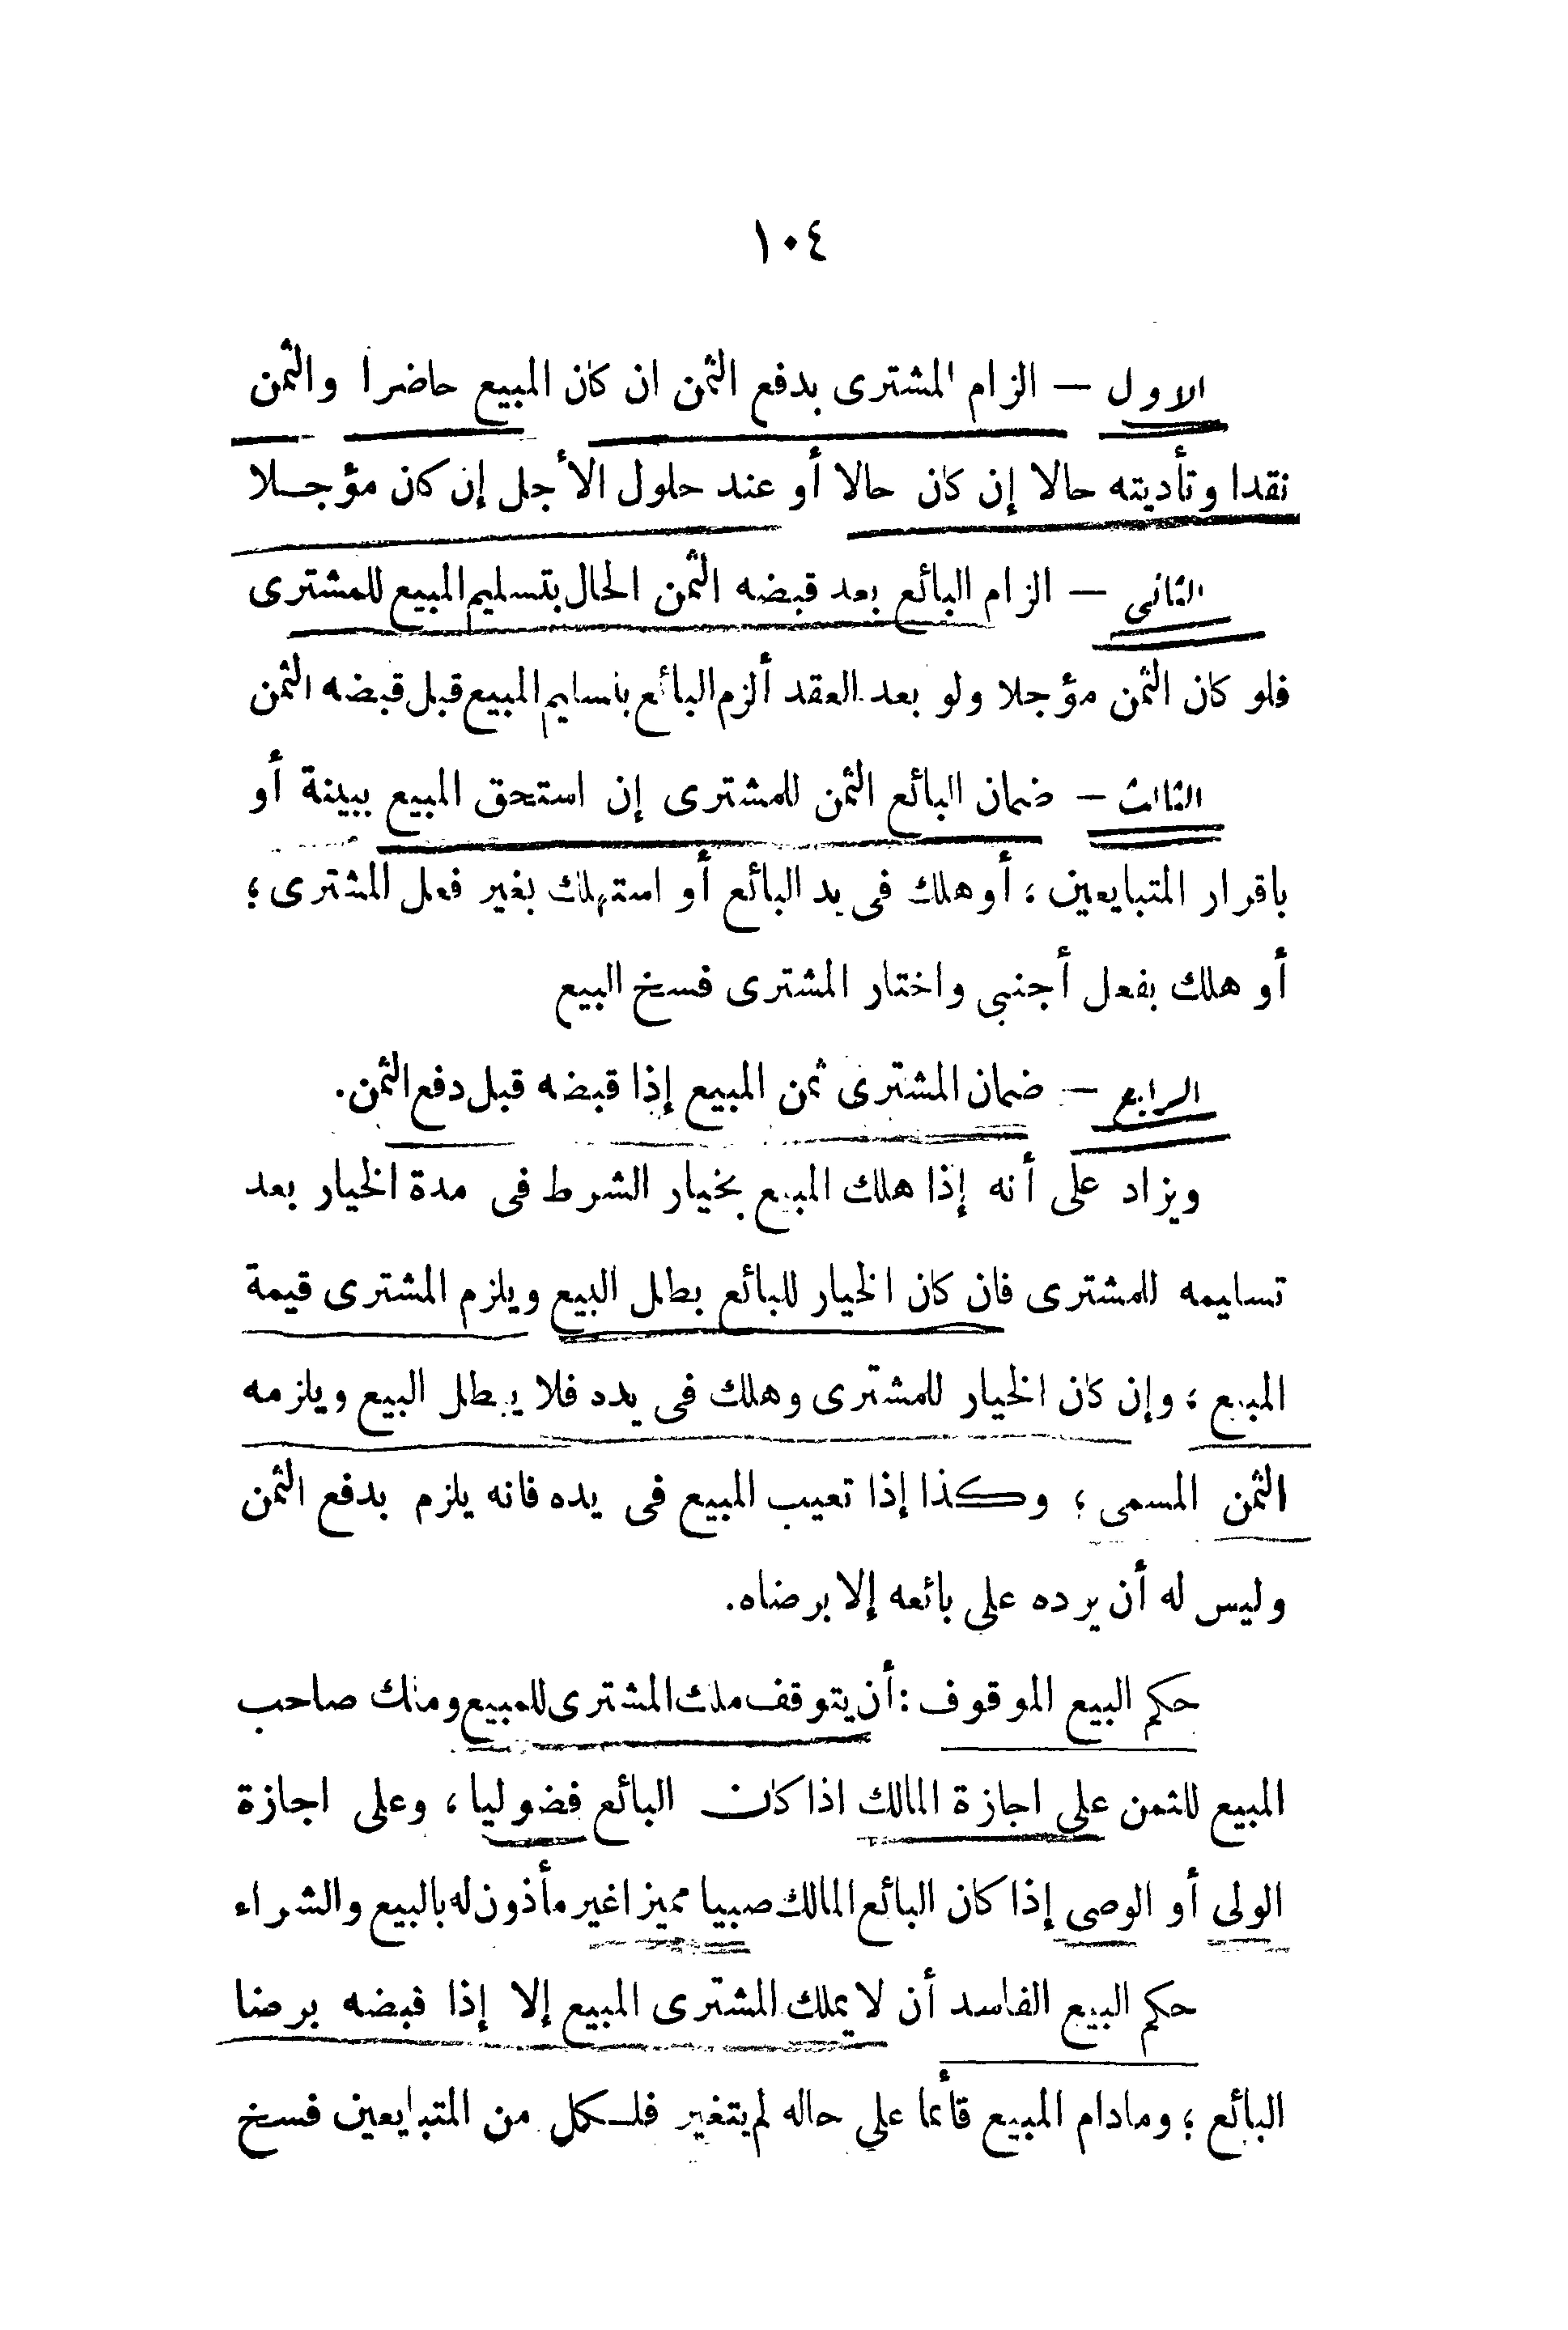 ١٠٤
الاول — الزام المشترى بدفع الثمن ان كان المبيع حاضرا والثمن
نقدا وتأديته حالا إن كان حالا أو عند حلول الأجل إن كان مؤجلا
الثانى — الزام البائع بعد قبضه الثمن الحال بتسليم المبيع للمشترى
فلو كان الثمن مؤجلا ولو بعد العقد ألزم البائع بتسليم المبيع قبل قبضه الثمن
الثالث — ضمان البائع الثمن للمشترى إن استحق المبيع ببينة أو
باقرار المتبايعين ؛ أو هلك فى يد البائع أو استهلك بغير فعل المشترى ؛
أو هلك بفعل أجنبى واختار المشترى فسخ البيع
الرابع — ضمان المشترى ثمن المبيع إذا قبضه قبل دفع الثمن.
ويزاد على أنه إذا هلك المبيع بخيار الشرط فى مدة الخيار بعد
تسليمه للمشترى فان كان الخيار للبائع بطل البيع ويلزم المشترى قيمة
المبيع ؛ وإن كان الخيار للمشترى وهلك فى يده فلا يبطل البيع ويلزمه
الثمن المسمى ؛ وكذا إذا تعيب المبيع فى يده فانه يلزم بدفع الثمن
وليس له أن يرده على بائعه إلا برضاه.
حكم البيع الموقوف : أن يتوقف ملك المشترى للمبيع وملك صاحب
المبيع للثمن على اجازة المالك اذا كان البائع فضوليا ، وعلى اجازة
الولى أو الوصى إذا كان البائع المالك صبيا مميزا غير مأذون له بالبيع والشراء
حكم البيع الفاسد أن لا يملك المشترى المبيع إلا إذا قبضه برضا
البائع ؛ ومادام المبيع قائما على حاله لم يتغير فلكل من المتبايعين فسخ